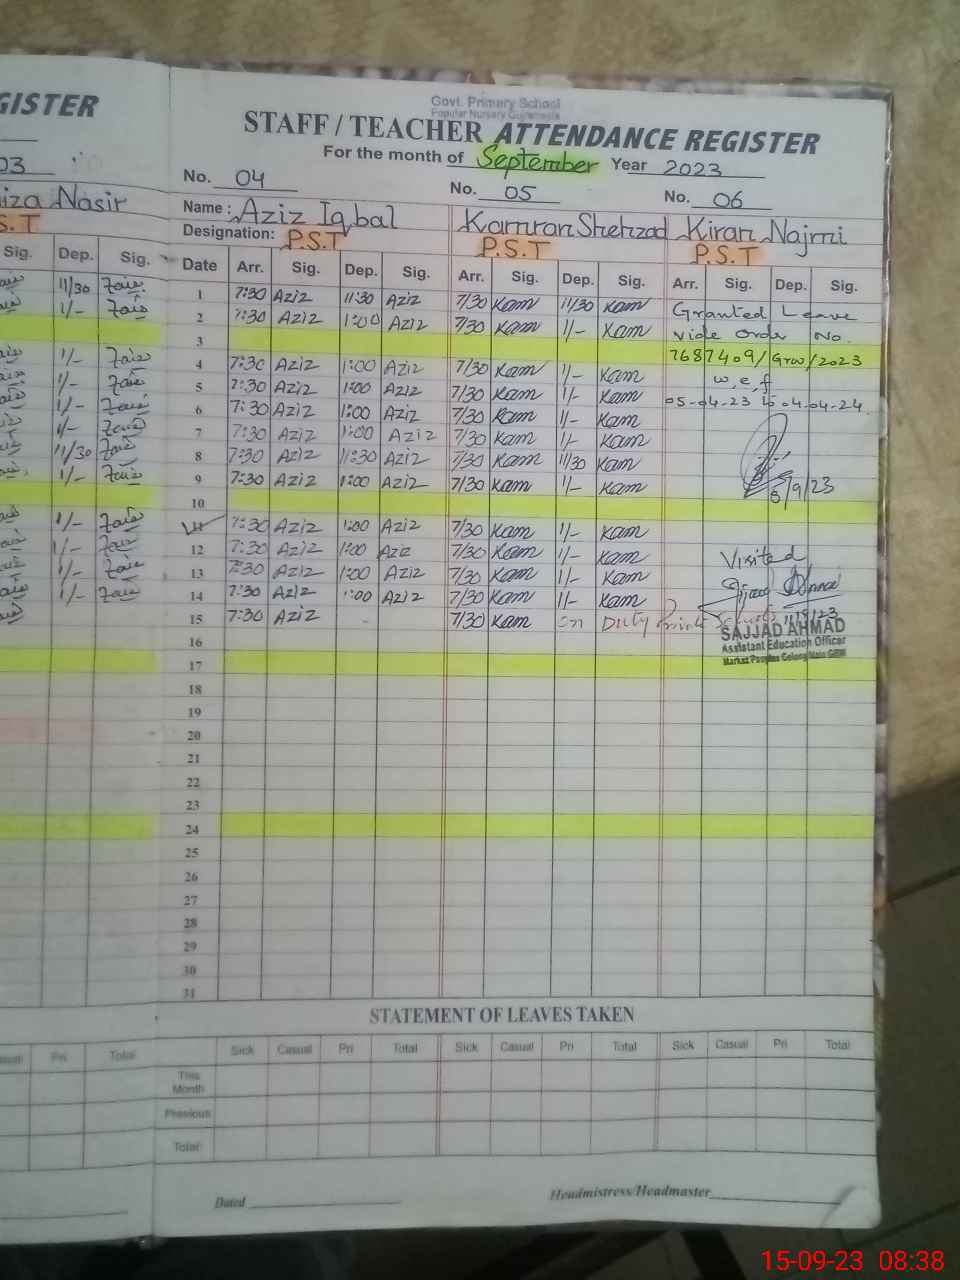 GISTER
03
iza Nasir
S.T
Sig. Dep. Sig.
11/30
1/-
1/-
1/-
1/-
1/-
11/30
1/-
1/-
1/-
1/-
1/-
Govt. Primary School
STAFF / TEACHER ATTENDANCE REGISTER
For the month of September Year 2023
No. 04 No. 05 No. 06
Name : Aziz Iqbal Kamran Shehzad Kiran Najmi
Designation: P.S.T P.S.T P.S.T
Date Arr. Sig. Dep. Sig. Arr. Sig. Dep. Sig. Arr. Sig. Dep. Sig.
1 7:30 Aziz 11:30 Aziz 7/30 Kam 11/30 Kam Granted Leave
2 7:30 Aziz 1:00 Aziz 7/30 Kam 1/- Kam vide order No.
3 7687409/Grw/2023
4 7:30 Aziz 1:00 Aziz 7/30 Kam 1/- Kam w.e.f
5 7:30 Aziz 1:00 Aziz 7/30 Kam 1/- Kam 05-04-23 to 04.04-24.
6 7:30 Aziz 1:00 Aziz 7/30 Kam 1/- Kam
7 7:30 Aziz 1:00 Aziz 7/30 Kam 1/- Kam
8 7:30 Aziz 11:30 Aziz 7/30 Kam 11/30 Kam
9 7:30 Aziz 1:00 Aziz 7/30 Kam 1/- Kam 6/9/23
10
11 7:30 Aziz 1:00 Aziz 7/30 Kam 1/- Kam
12 7:30 Aziz 1:00 Aziz 7/30 Kam 1/- Kam Visited
13 7:30 Aziz 1:00 Aziz 7/30 Kam 1/- Kam
14 7:30 Aziz 1:00 Aziz 7/30 Kam 1/- Kam
15 7:30 Aziz 7/30 Kam on Duty Schools
SAJJAD AHMAD
Assistant Education Officer
16
17
18
19
20
21
22
23
24
25
26
27
28
29
30
31
STATEMENT OF LEAVES TAKEN
Casual Pri Total Sick Casual Pri Total Sick Casual Pri Total Sick Casual Pri Total
This Month
Previous
Total
Dated Headmistress/Headmaster
15-09-23 08:38